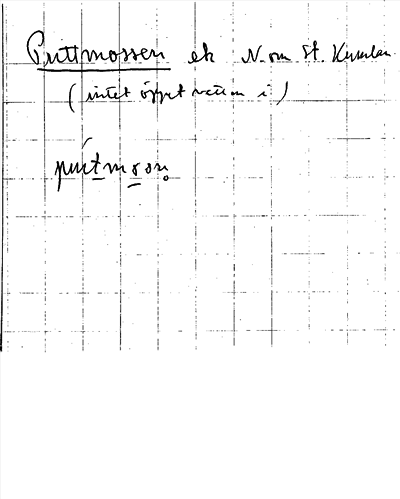 Puttmossen ek N. om St. Kumlan
(intet öppet vatten i)
puttmosn